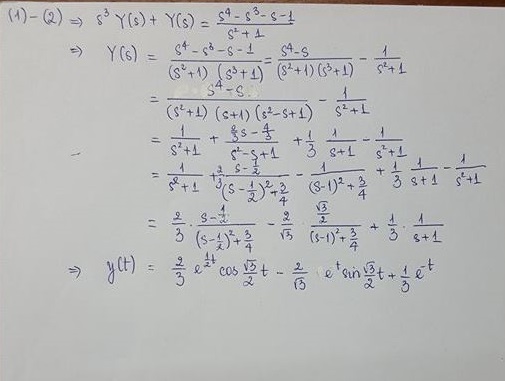 (1)-(2) ⇒ s³ Y(s) + Y(s) = (s⁴ - s³ - s - 1)/(s² + 1)
⇒ Y(s) = (s⁴ - s³ - s - 1)/((s² + 1) (s³ + 1)) = (s⁴ - s)/((s² + 1)(s³ + 1)) - 1/(s² + 1)
= (s⁴ - s)/((s² + 1) (s + 1) (s² - s + 1)) - 1/(s² + 1)
= 1/(s² + 1) + (2/3 s - 4/3)/(s² - s + 1) + 1/3 1/(s + 1) - 1/(s² + 1)
= 1/(s² + 1) + 2/3 (s - 1/2)/((s - 1/2)² + 3/4) - 1/((s - 1)² + 3/4) + 1/3 1/(s + 1) - 1/(s² + 1)
= 2/3 · (s - 1/2)/((s - 1/2)² + 3/4) - 2/√3 · (√3/2)/((s - 1)² + 3/4) + 1/3 · 1/(s + 1)
⇒ y(t) = 2/3 e^(1/2 t) cos √3/2 t - 2/√3 e^t sin √3/2 t + 1/3 e^-t